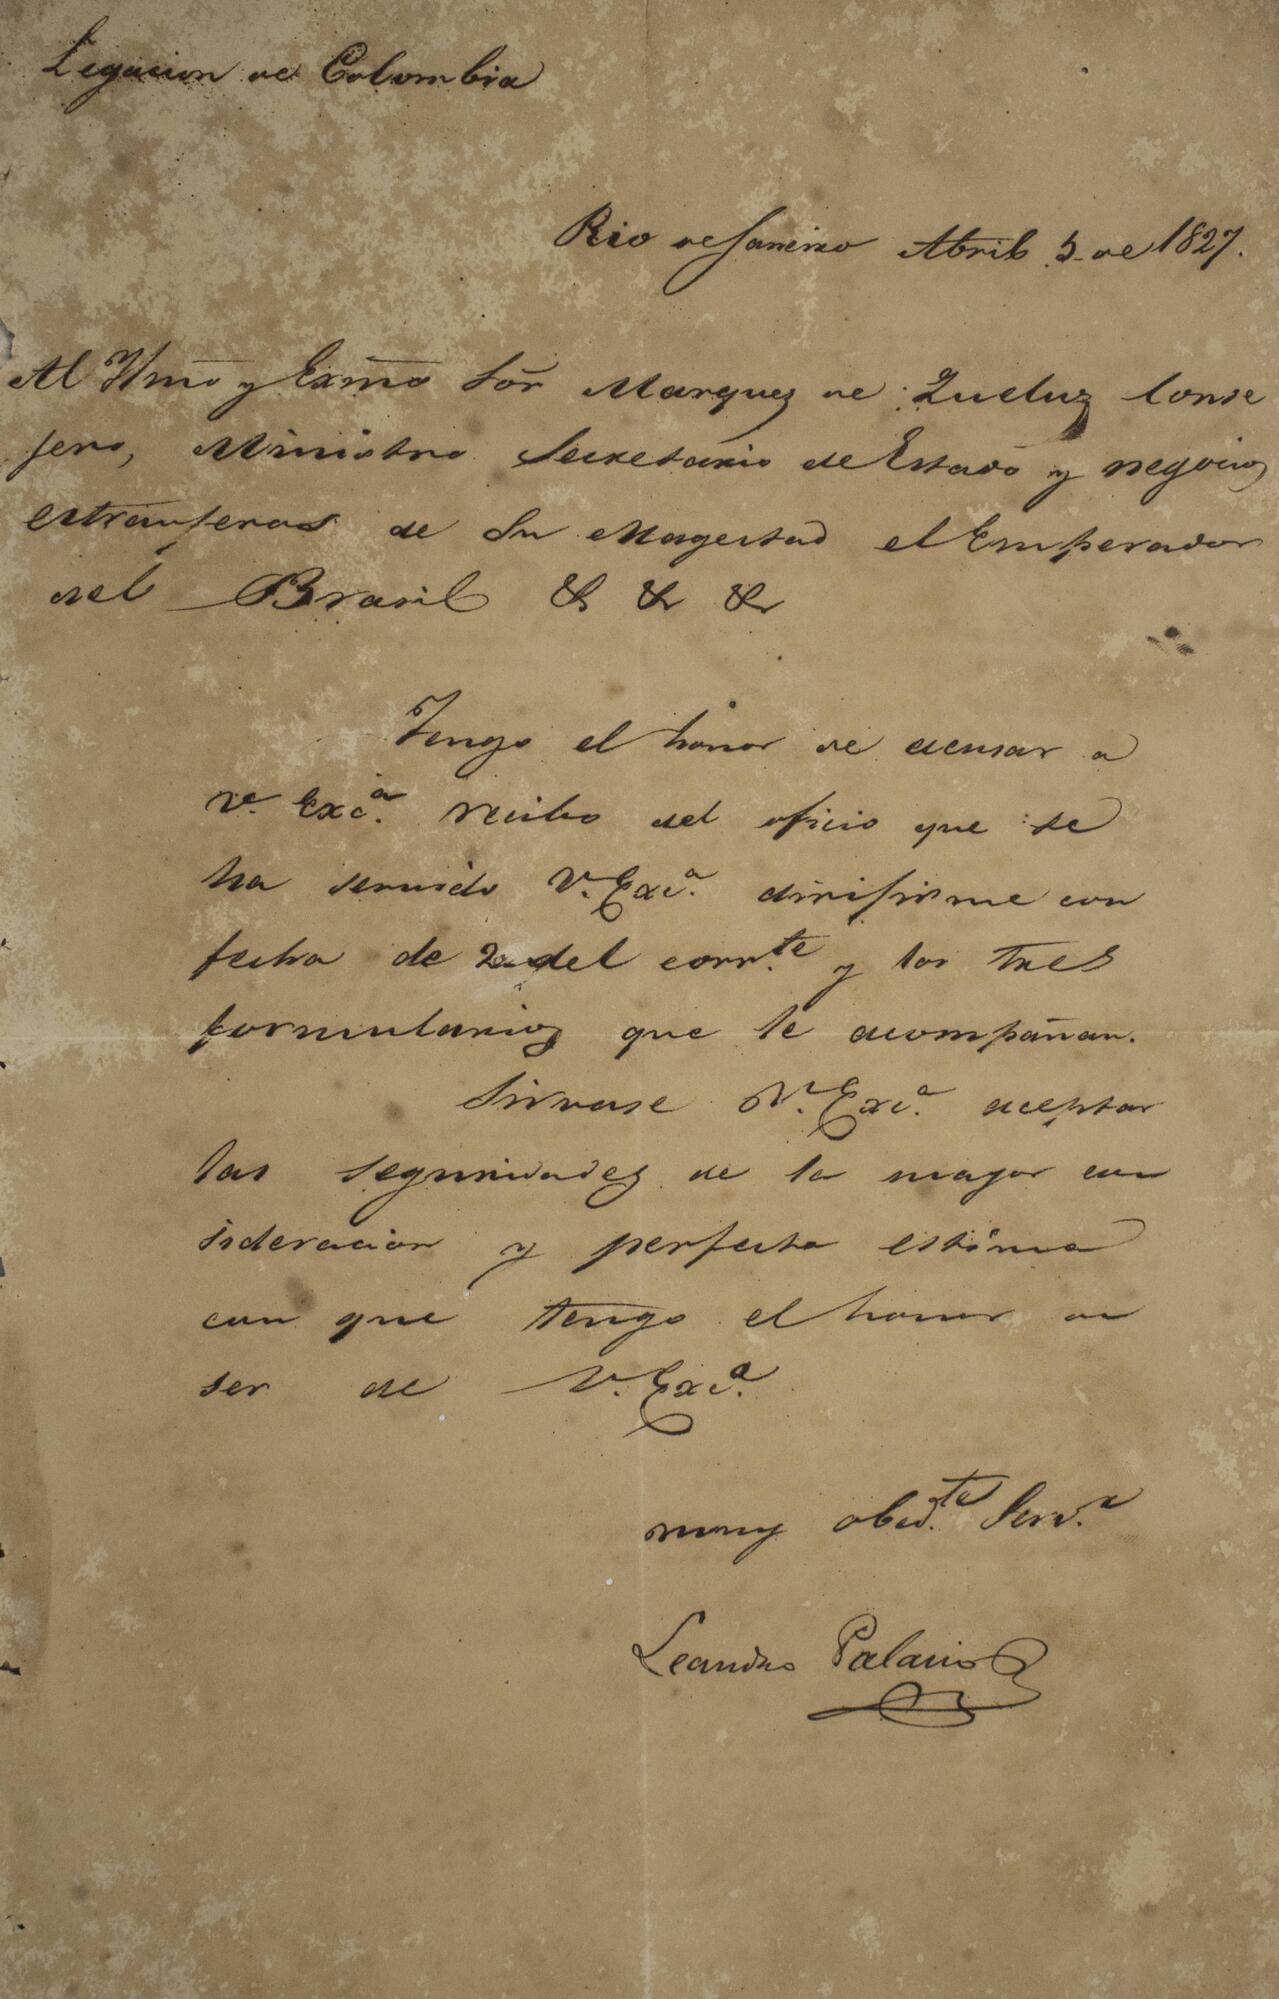 Legacion de Colombia
Rio de Janeiro Abril 5 de 1827.
Al Ylmo y Exmo Sor Marquez de Queluz Conse
jero, Ministro Secretario de Estado y negocios
estranjeros de Su Magestad el Emperador
del Brasil & & &
Tengo el honor de acusar a
V. Exca. recibo del oficio que se
ha servido V. Exca. dirijirme con
fecha de 2 del corrte. y los tres
formularios que le acompañan.
Sirvase V. Exca. aceptar
las seguridades de la mayor con
sideracion y perfecta estima
con que tengo el honor de
ser de V. Exca.
muy obedte. Serv.r
Leandro Palacios